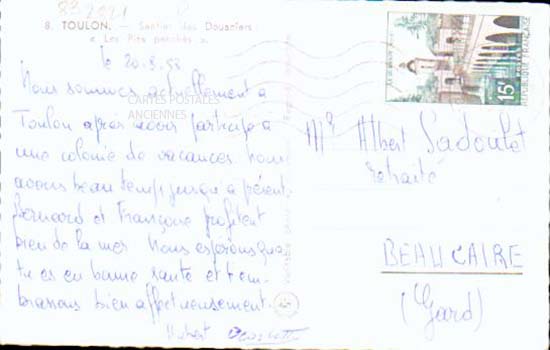 8. TOULON. — Sentier des Douaniers
« Les Pins penchés ».
le 20.8.58
CARTES POSTALES
ANCIENNES
Nous sommes actuellement à
Toulon après avoir participé à
une colonie de vacances. Nous
avons beau temps jusqu'à présent,
Bernard et Françoise profitent
bien de la mer. Nous espérons que
tu es en bonne santé et t'em-
brassons bien affectueusement.
Hubert
15F
REPUBLIQUE FRANÇAISE
Mr Albert Sadoulet
retraité
BEAUCAIRE
(Gard)